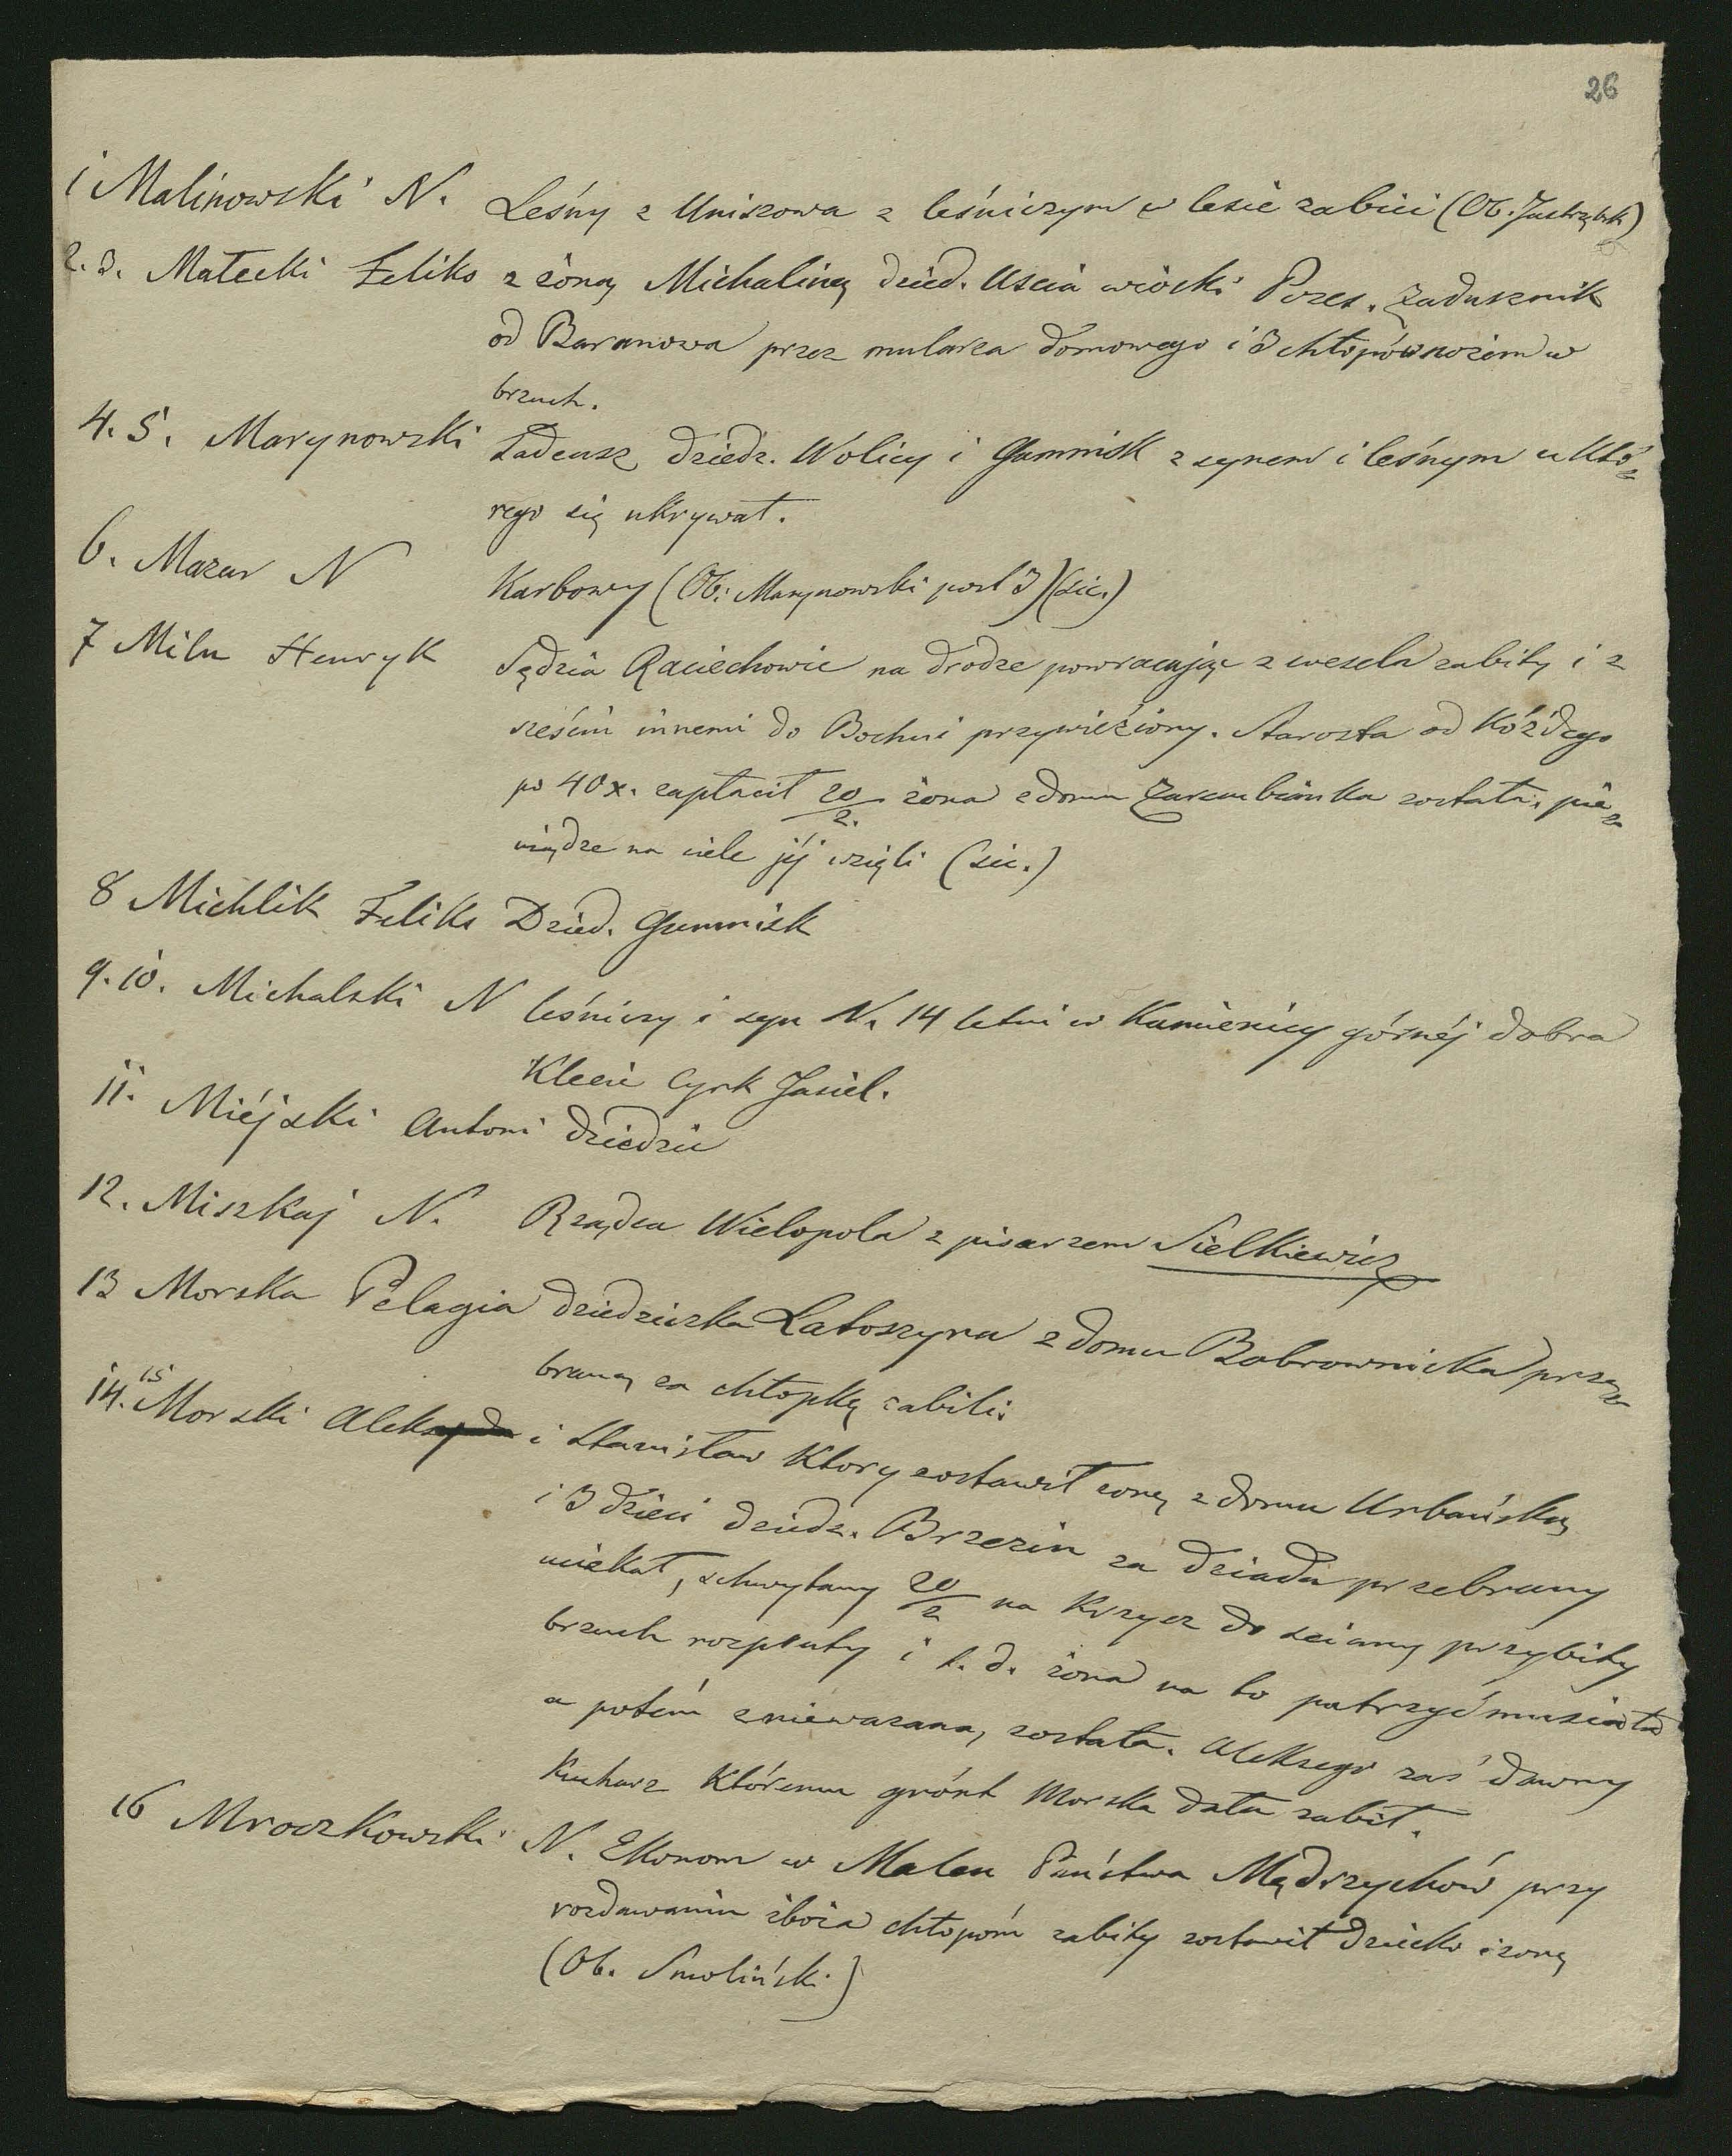 26
1 Malinowski N. Leśny z Uniszowa z leśniczym w lesie zabici (Ob. Jastrzębsk)
2. 3. Małecki Feliks z żoną Michaliną dzied. Uscia wioski Poses. Zadusznik
od Baranowa przez mularza domowego i 3 chłopów nożem w
brzuch.
4. 5. Marynowski Tadeusz, dziedz. Wolicy i Gumnisk z synem i leśnym u któ=
rego się ukrywał.
6. Mazur N Karbowy (Ob: Marynowski post 3)(sic.)
7 Milu Henryk Sędzia Raciechowic na drodze powracając z wesela zabity i z
sześciu innemi do Bochni przywieźiony. Starosta od kóżdego
po 40x. zapłacił 20/2. żona z domu Zarembianka została, pie=
niądze na ciele jéj wzięli (sic.)
8 Michlik Feliks Dzied. Gumnisk
9. 10. Michalski N leśniczy i syn N. 14 letni w Kamienicy górnéj dobra
Klecie Cyrk Jasiel.
11. Miéjski Antoni dziedzic
12. Miszkaj N. Rządca Wielopola z pisarzem Sielkiewicz
13 Morska Pelagia dziedziczka Latoszyna z domu Bobrownicka prze=
braną za chłopkę zabili.
14. 15 Morski Aleks i Stanisław Ktory zostawił żonę z domu Urbańską
i 3 dzieci dziedz. Brzezin za dziada przebrany
uciekał, schwytany 20/2 na krzyż do sciany przybity
brzuch rozpruty i t. d. żona na to patrzyć musiała
a potém znieważana, została. Aleksego zaś dawny
Kucharz Któremu grónt Morska dała zabił.
16 Mroczkowski N. Ekonom w Malcu Państwa Mędrzychów przy
rozdawaniu zboża chłopom zabity zostawił dziecko i żonę
(Ob. Smoliński)